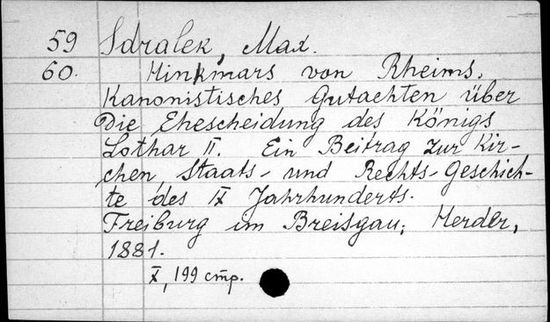 59 Sdralek, Max.
60. Hinkmars von Rheims.
Kanonistisches Gutachten über
Die Ehescheidung des Königs
Lothar II. Ein Beitrag zur Kir-
chen, Staats- und Rechts-Geschich-
te des IX Jahrhunderts.
Freiburg im Breisgau; Herder,
1881.
X, 199 стр.